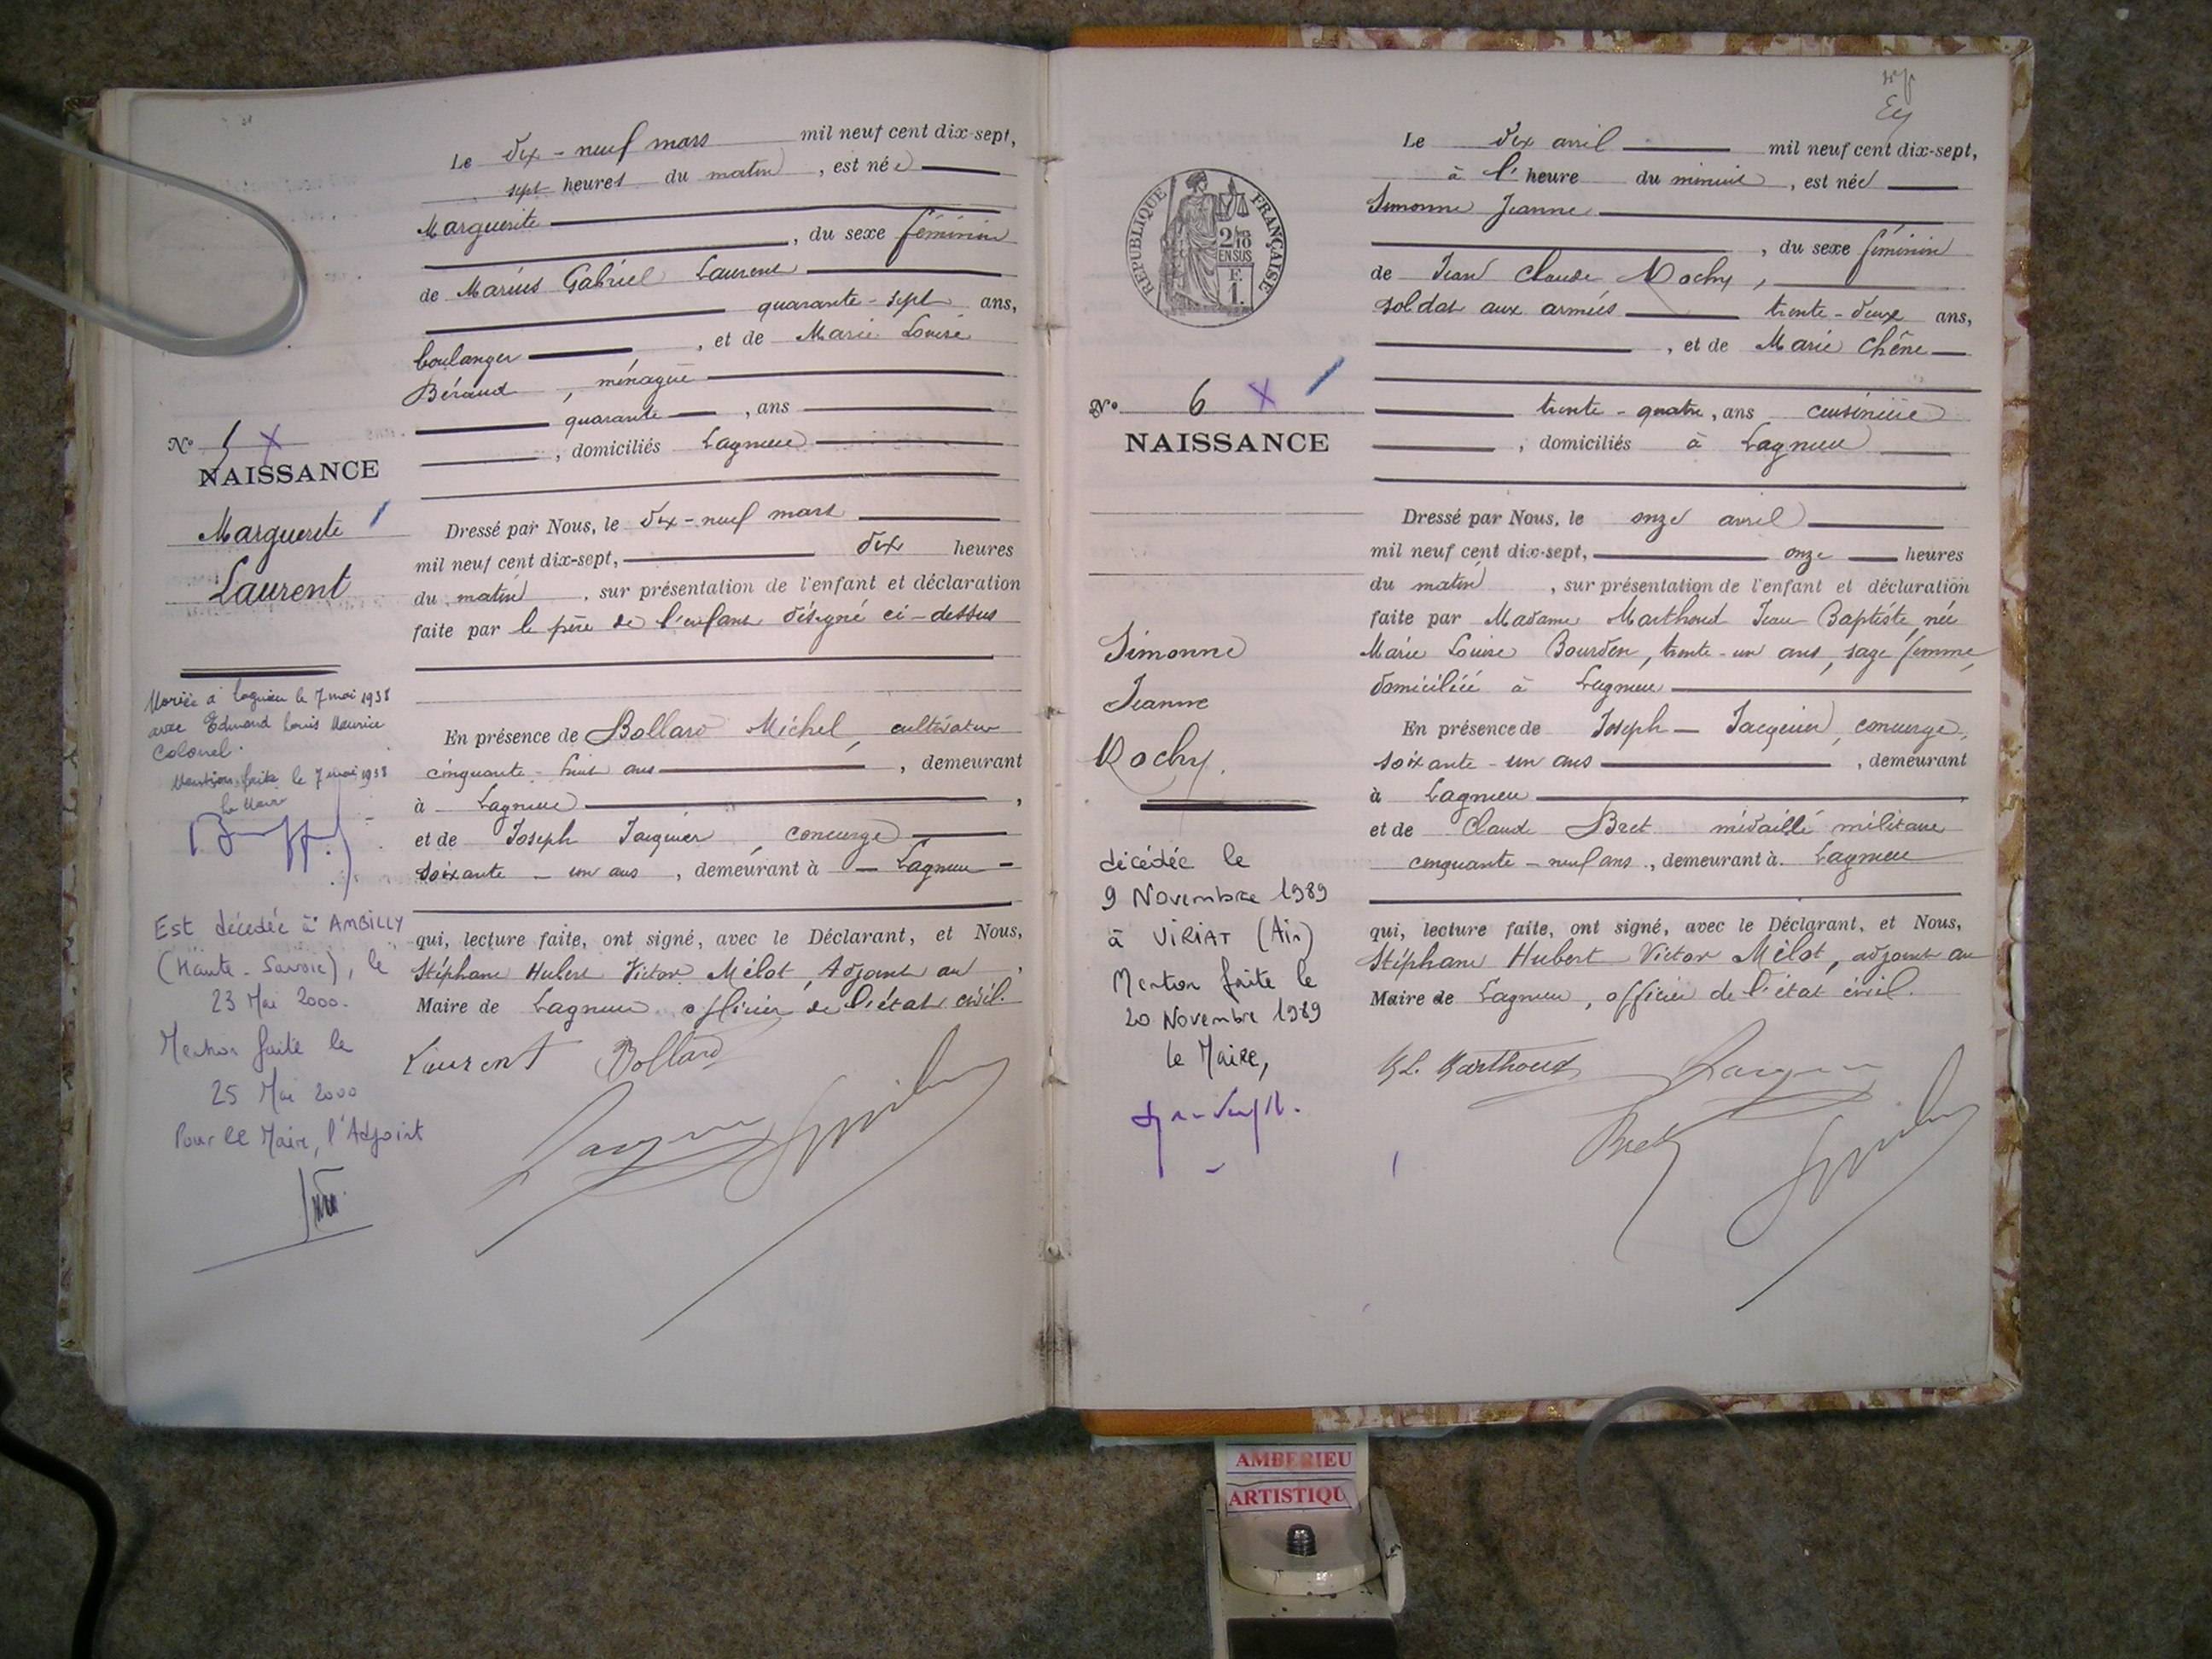 Le dix-neuf mars mil neuf cent dix-sept,
sept heures du matin, est née
Marguerite
, du sexe féminin
de Marius Gabriel Laurent
quarante-sept ans,
boulanger, et de Marie Louise
Béraud, ménagère
quarante, ans
, domiciliés Lagnieu
N° 5
NAISSANCE
Marguerite
Laurent
Dressé par Nous, le dix-neuf mars
mil neuf cent dix-sept, dix heures
du matin, sur présentation de l'enfant et déclaration
faite par le père de l'enfant désigné ci-dessus
Mariée à Lagnieu le 7 mai 1938
avec Edmond Louis Maurice
Colonel.
Mention faite le 7 mai 1938
Le Maire
En présence de Bollard Michel, cultivateur
cinquante-huit ans, demeurant
à Lagnieu,
et de Joseph Jacquier, concierge
soixante-un ans, demeurant à Lagnieu
Est décédée à AMBILLY
(Haute-Savoie), le
23 Mai 2000.
Mention faite le
25 Mai 2000
Pour le Maire, l'Adjoint
qui, lecture faite, ont signé, avec le Déclarant, et Nous,
Stéphane Hubert Victor Mélot, Adjoint au
Maire de Lagnieu officier de l'état civil.
Laurent Bollard
Le dix avril mil neuf cent dix-sept,
à l'heure du minuit, est née
Simonne Jeanne
, du sexe féminin
de Jean Claude Rochy,
soldat aux armées trente-deux ans,
, et de Marie Chêne
trente-quatre, ans cuisinière
, domiciliés à Lagnieu
REPUBLIQUE FRANÇAISE
2/10
EN SUS
F.
1.
N° 6
NAISSANCE
Simonne
Jeanne
Rochy.
Dressé par Nous, le onze avril
mil neuf cent dix-sept, onze heures
du matin, sur présentation de l'enfant et déclaration
faite par Madame Marthoud Jean Baptiste, née
Marie Louise Bourdin, trente-un ans, sage femme,
domiciliée à Lagnieu
En présence de Joseph Jacquier, concierge,
soixante-un ans, demeurant
à Lagnieu
et de Claude Bret médaillé militaire
cinquante-neuf ans, demeurant à Lagnieu
décédée le
9 Novembre 1989
à VIRIAT (Ain)
Mention faite le
20 Novembre 1989
le Maire,
qui, lecture faite, ont signé, avec le Déclarant, et Nous,
Stéphane Hubert Victor Mélot, adjoint au
Maire de Lagnieu, officier de l'état civil.
Marthoud
Bret
AMBERIEU
ARTISTIQU